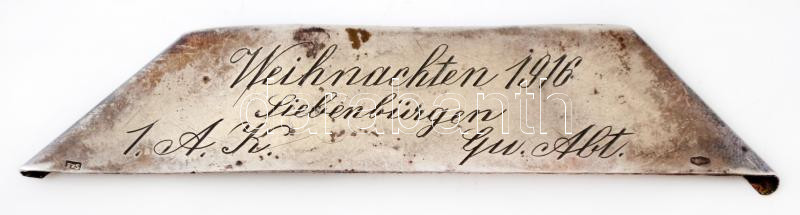 Weihnachten 1916
Siebenbürgen
1. A. K. Qu. Abt.
darabanth